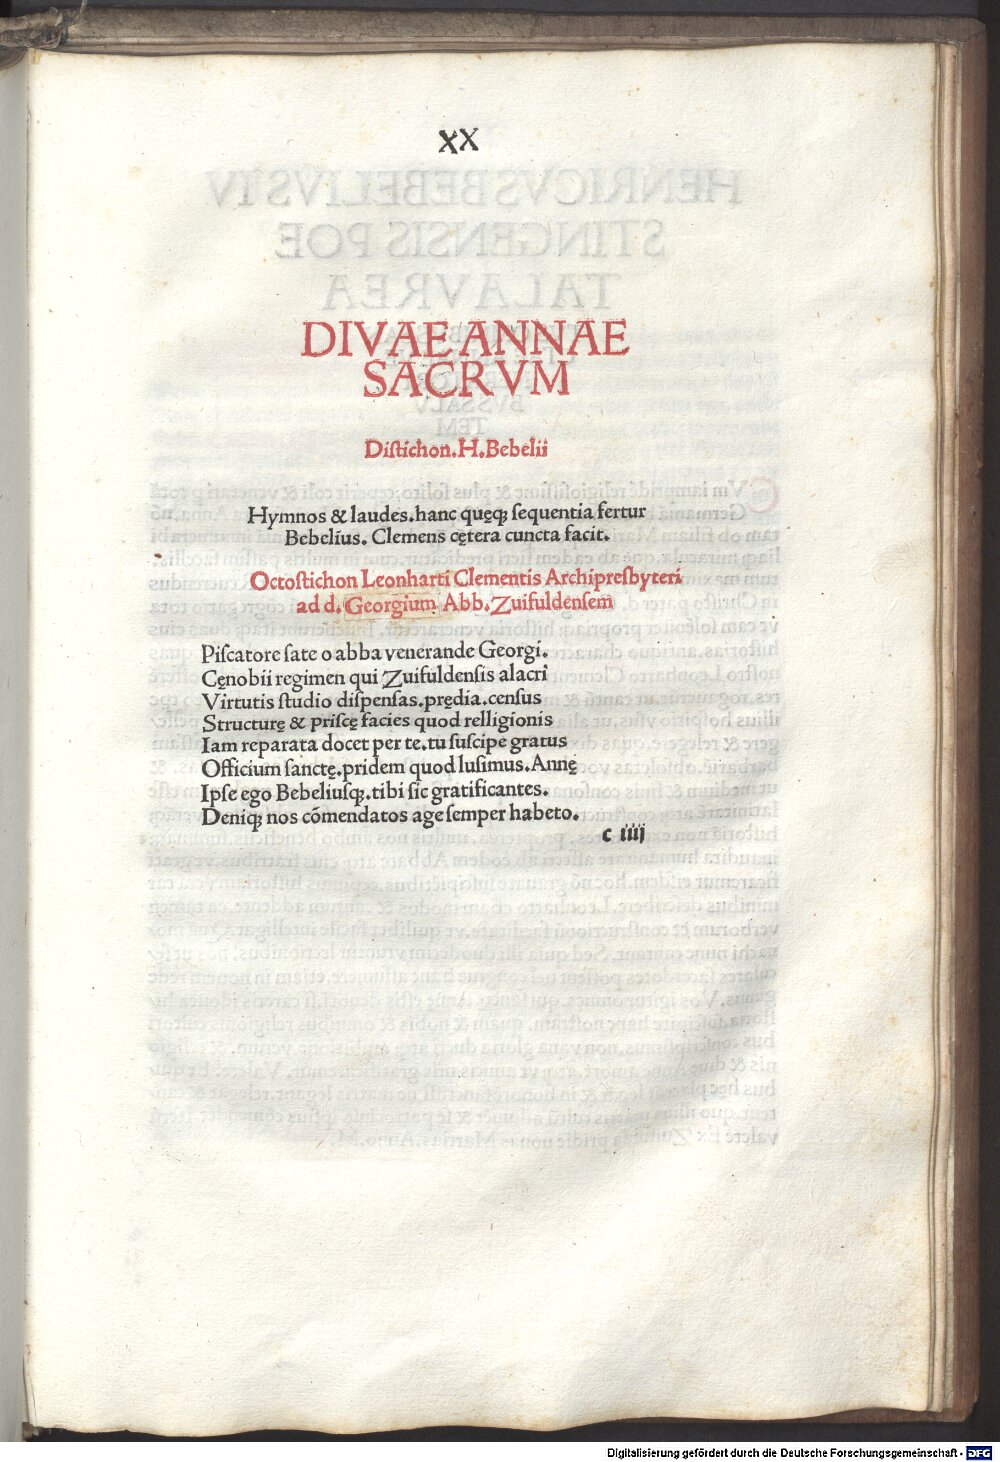 XX
DIVAE ANNAE
SACRVM
Diſtichon.H.Bebelii
Hymnos & laudes.hanc quęqꝫ ſequentia fertur
Bebelius. Clemens cętera cuncta facit.
Octoſtichon Leonharti Clementis Archipreſbyteri
ad d. Georgium Abb. Zuifuldenſem
Piſcatore ſate o abba venerande Georgi.
Cęnobii regimen qui Zuifuldenſis alacri
Virtutis ſtudio diſpenſas.prędia.cenſus
Structurę & priſcę facies quod relligionis
Iam reparata docet per te.tu ſuſcipe gratus
Officium ſanctę.pridem quod luſimus.Annę
Ipſe ego Bebeliuſqꝫ.tibi ſic gratificantes.
Deniqꝫ nos cōmendatos age ſemper habeto.
c iiij
Digitalisierung gefördert durch die Deutsche Forschungsgemeinschaft - DFG